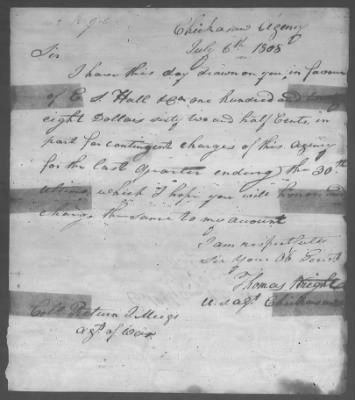 Chickasaw Agency
July 6th 1808
Sir
I have this day drawn on you, in favour
of E. S. Hall one hundred and
eight Dollars sixty two and half Cents, in
part for contingent charges of this Agency
for the last quarter ending the 30th
ultimo, which I hope you will honor and
charge the same to my account
I am respectfully
Sir Your Ob Servt
Thomas Wright
U.S. agt Chickasaws
Coll Return J Meigs
agt of War